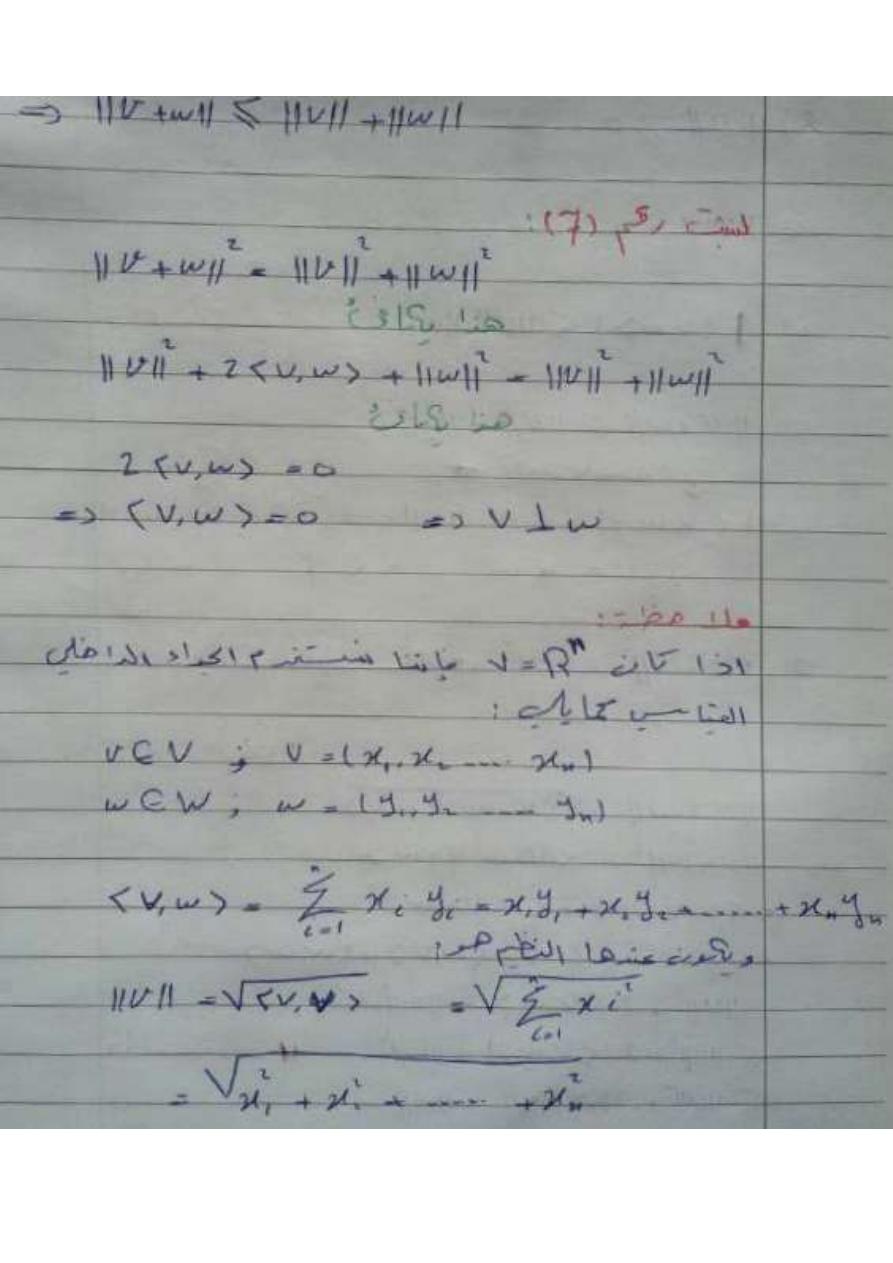 ⇒ ||v + w|| ≤ ||v|| + ||w||
لنثبت رقم (7):
||v + w||² = ||v||² + ||w||²
هذا يكافئ
||v||² + 2<v,w> + ||w||² = ||v||² + ||w||²
هذا يكافئ
2<v,w> = 0
=> <v,w> = 0 => v ⊥ w
ملاحظة:
اذا كان V = Rⁿ فإننا نستخدم الجداء الداخلي
القياسي كمايلي:
v ∈ V ; v = (x₁, x₂ .... xₙ)
w ∈ W ; w = (y₁, y₂ .... yₙ)
<v,w> = Σⁿᵢ₌₁ xᵢ yᵢ = x₁y₁ + x₂y₂ + ...... + xₙyₙ
ويكون عندها النظيم هو:
||v|| = √<v,v> = √Σⁿᵢ₌₁ xᵢ²
= √x₁² + x₂² + ..... + xₙ²